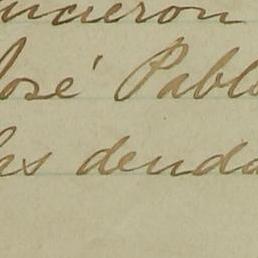 ncieron
José Pablo
las deuda